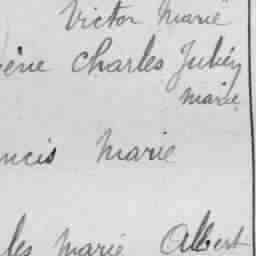 Victor Marie
ène Charles Julien
Marie
ncis Marie
les Marie Albert